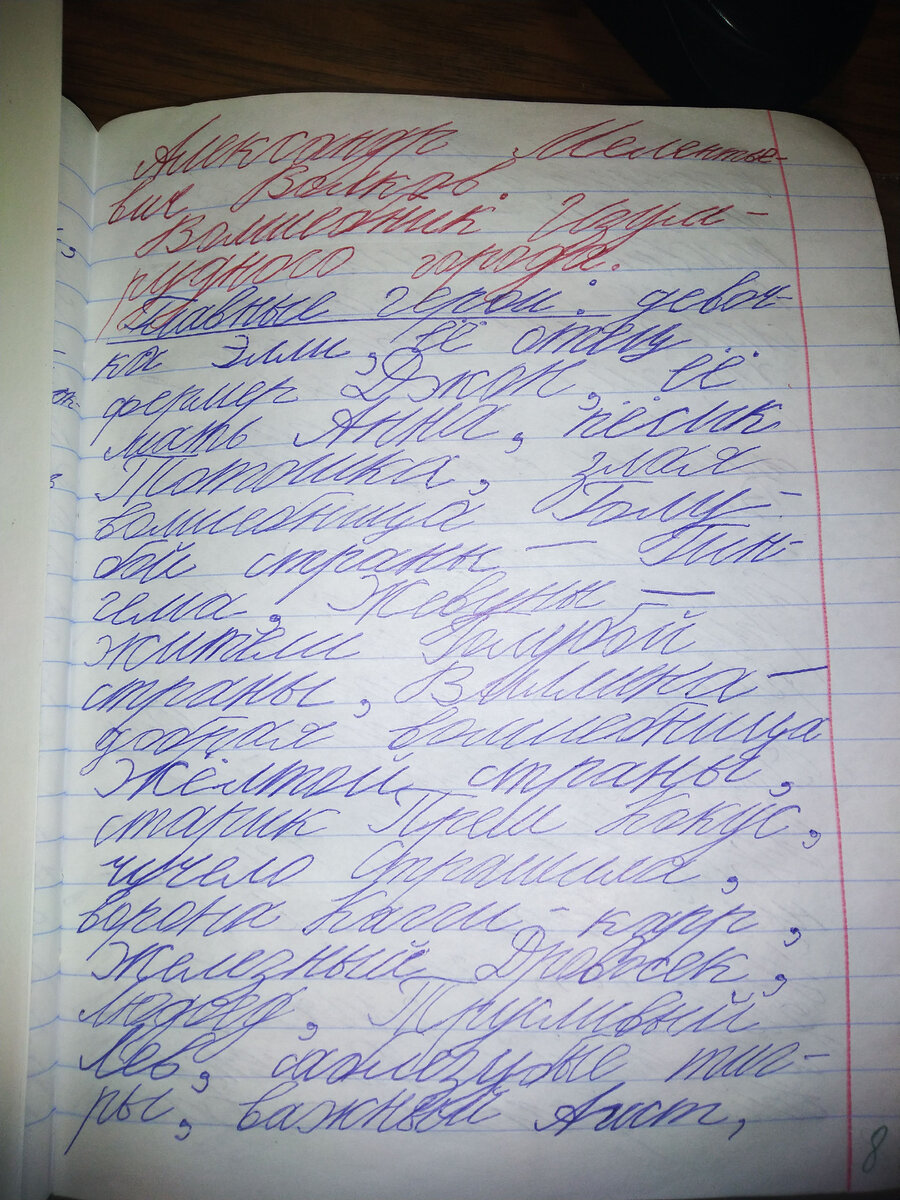 Александр Мелентье-
вич Волков.
Волшебник Изум-
рудного города.
Главные герои: девоч-
ка Элли, её отец
фермер Джон, её
мать Анна, пёсик
Тотошка, злая
волшебница Голу-
бой страны — Гин-
гема, Жевуны —
жители Голубой
страны, Виллина —
добрая волшебница
Жёлтой страны,
старик Прем Кокус,
чучело Страшила,
ворона Кагги-карр,
Железный Дровосек,
Людоед, Трусливый
Лев, саблезубые тиг-
ры, важный Аист,
8